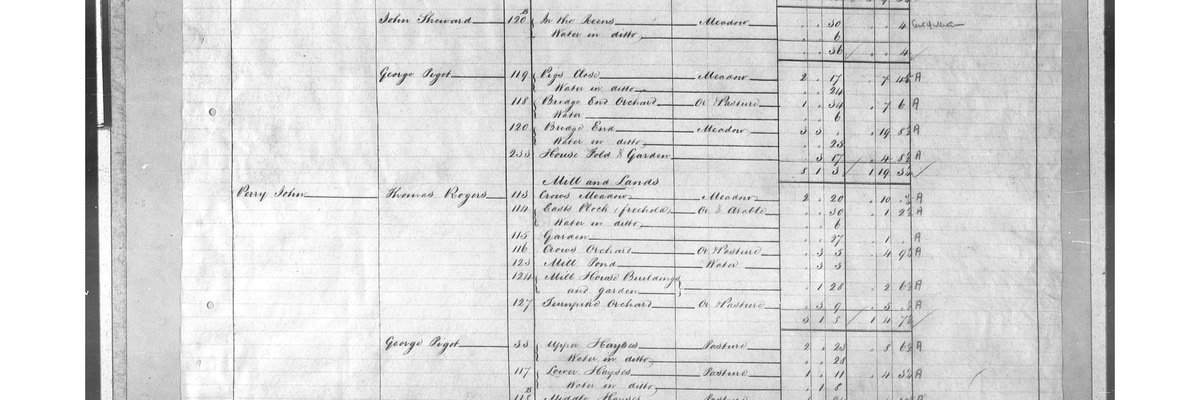 John Sheward 120 B In the Keens Meadow . . 30 . . 4
Water in ditto . . 6
. . 36 . . 4
George Pigot 119 Pigs Close Meadow 2 . 17 . 7 4½ A
Water in ditto . . 24
118 Bridge End Orchard Or Pasture 1 . 34 . 7 6 A
Water . . 6
120 Bridge End Meadow 3 3 . . 19 8½ A
Water in ditto . . 23
233 House Fold & Garden . 3 17 . 4 8½ A
8 1 3 1 19 3½
Mill and Lands
Perry John Thomas Rogers 113 Crows Meadow Meadow 2 . 20 . 10 . ½ A
114 Easts Plock (freehold) Or & Arable . . 30 . 1 2½ A
Water in ditto . . 6
115 Garden . . 27 . 1 . A
116 Crows Orchard Or Pasture . 3 3 . 4 9½ A
123 Mill Pond Water . 3 3
124 Mill House Buildings
and garden . 1 28 . 2 6½ A
127 Turnpike Orchard Or Pasture . 3 9 . 5 . ½ A
5 1 5 1 4 7½
George Pigot 33 Upper Hayses Pasture 2 . 23 . 8 6½ A
Water in ditto . . 28
117 Lower Hayses Pasture 1 . 11 . 4 3½ A
Water in ditto . 1 8
118 B Middle Hayses Pasture